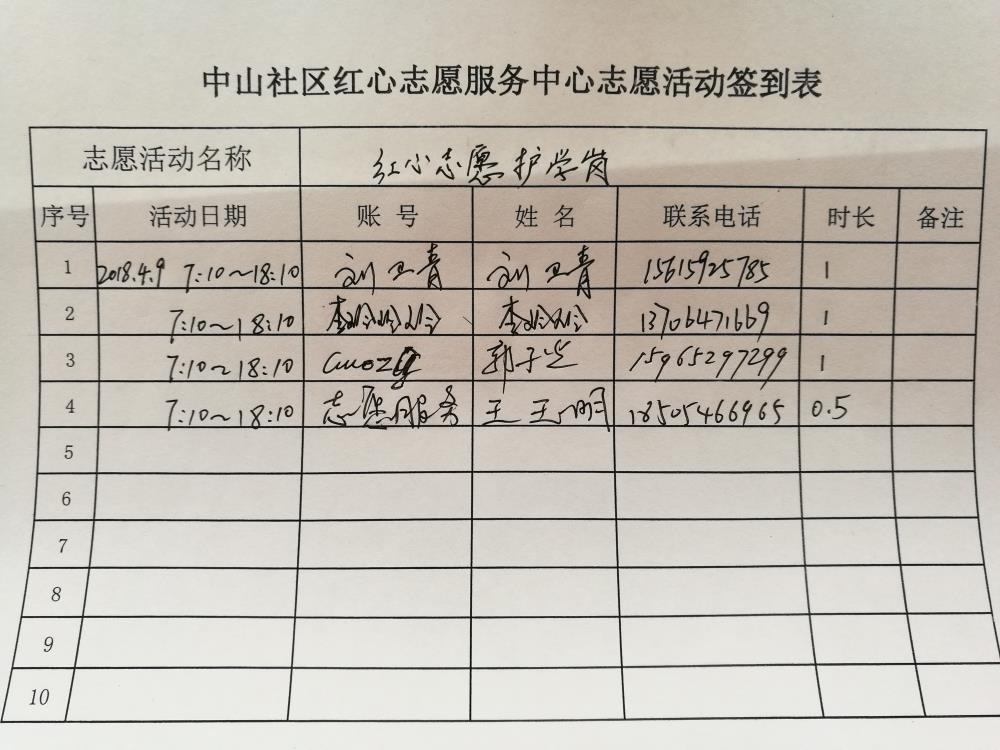 中山社区红心志愿服务中心志愿活动签到表
志愿活动名称 红小志愿护学岗
序号 活动日期 账号 姓名 联系电话 时长 备注
1 2018.4.9 7:10～18:10 刘卫青 刘卫青 15615925785 1
2 7:10～18:10 李玲玲 李玲玲 13706471669 1
3 7:10～18:10 郭子 15965297299 1
4 7:10～18:10 志愿服务 王玉明 18505466965 0.5
5
6
7
8
9
10